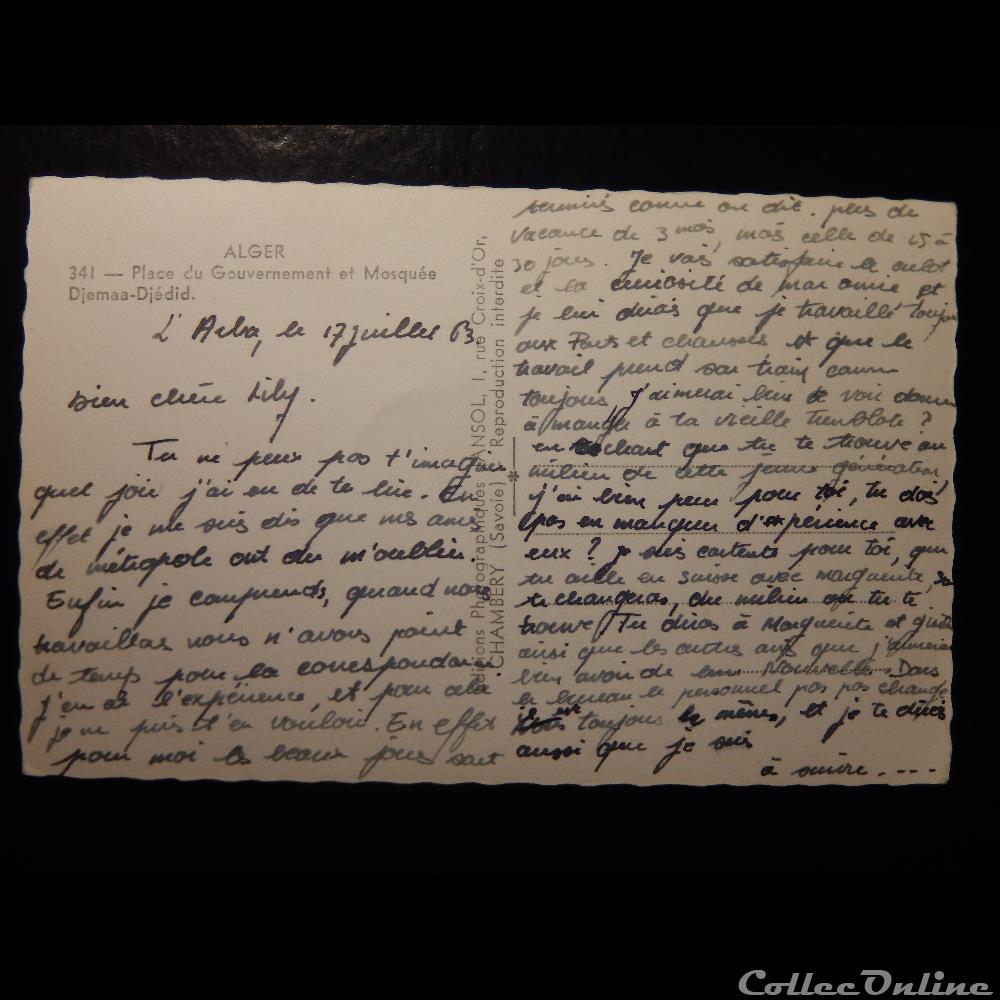 ALGER
341 — Place du Gouvernement et Mosquée
Djemaa-Djédid.
L'Arba, le 17 juillet 63.
Bien chère Lily.
Tu ne peux pas t'imaginer
quel joie j'ai eu de te lire. En
effet je me suis dis que mes amis
de métropole ont du m'oublier.
Enfin je comprends, quand nous
travaillas nous n'avons point
de temps pour la correspondance
j'en ai l'expérience, et pour cela
je ne puis t'en vouloir. En effet
pour moi les beaux jours sont
Editions Photographiques JANSOL, 1, rue Croix-d'Or,
CHAMBERY (Savoie) Reproduction interdite
terminés comme on dit. plus de
vacance de 3 mois, mais celle de 15 à
30 jours. Je vais satisfaire le culot
et la curiosité de mon amie et
je lui dirais que je travaille toujours
aux Ponts et chaussés et que le
travail prend son train comme
toujours. J'aimerai bien te voir donner
à manger à ta vieille Tremblote ?
en sachant que tu te trouve au
milieu de cette jeune génération,
j'ai bien peur pour toi, tu dois
pas en manquer d'expérience avec
eux ? je suis contente pour toi, que
tu aille en suisse avec marguerite, sa
te changeras, du milieu ou tu te
trouve. Tu diras à Marguerite et
ainsi que les autres que j'aimerai
bien avoir de leur Nouvelles. Dans
le bureau le personnel pas pas changé
est toujours le mêmes, et je te dirais
aussi que je suis
à suivre. ---
CollecOnline